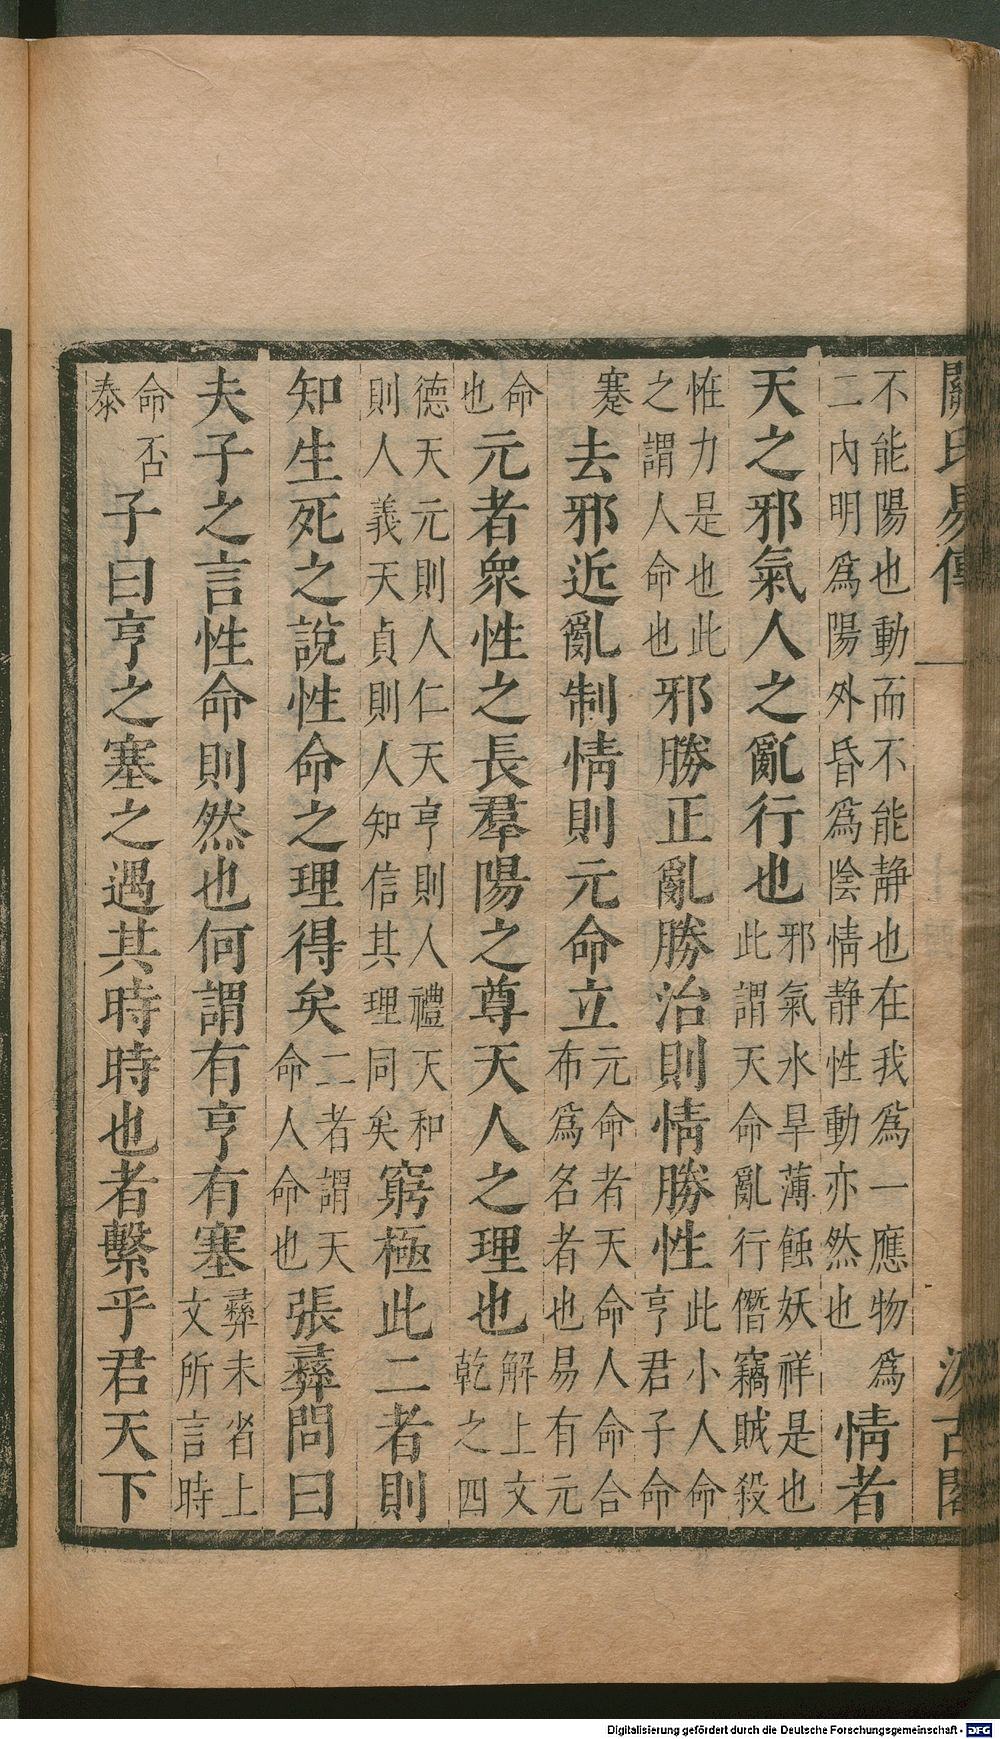 關氏易傳 一 汲古閣
不能陽也動而不能靜也在我爲一應物爲
二內明爲陽外昏爲陰情靜性動亦然也
情者
天之邪氣人之亂行也
邪氣水旱薄蝕妖祥是也
此謂天命亂行僭竊賊殺
恠力是也此
之謂人命也
邪勝正亂勝治則情勝性
此小人命
亨君子命
蹇
去邪近亂制情則元命立
元命者天命人命合
布爲名者也易有元
命
也
元者衆性之長羣陽之尊天人之理也
解上文
乾之四
德天元則人仁天亨則人禮天和
則人義天貞則人知信其理同矣
窮極此二者則
知生死之說性命之理得矣
二者謂天
命人命也
張彞問曰
夫子之言性命則然也何謂有亨有塞
彞未省上
文所言時
命否
泰
子曰亨之塞之遇其時時也者繫乎君天下
Digitalisierung gefördert durch die Deutsche Forschungsgemeinschaft - DFG